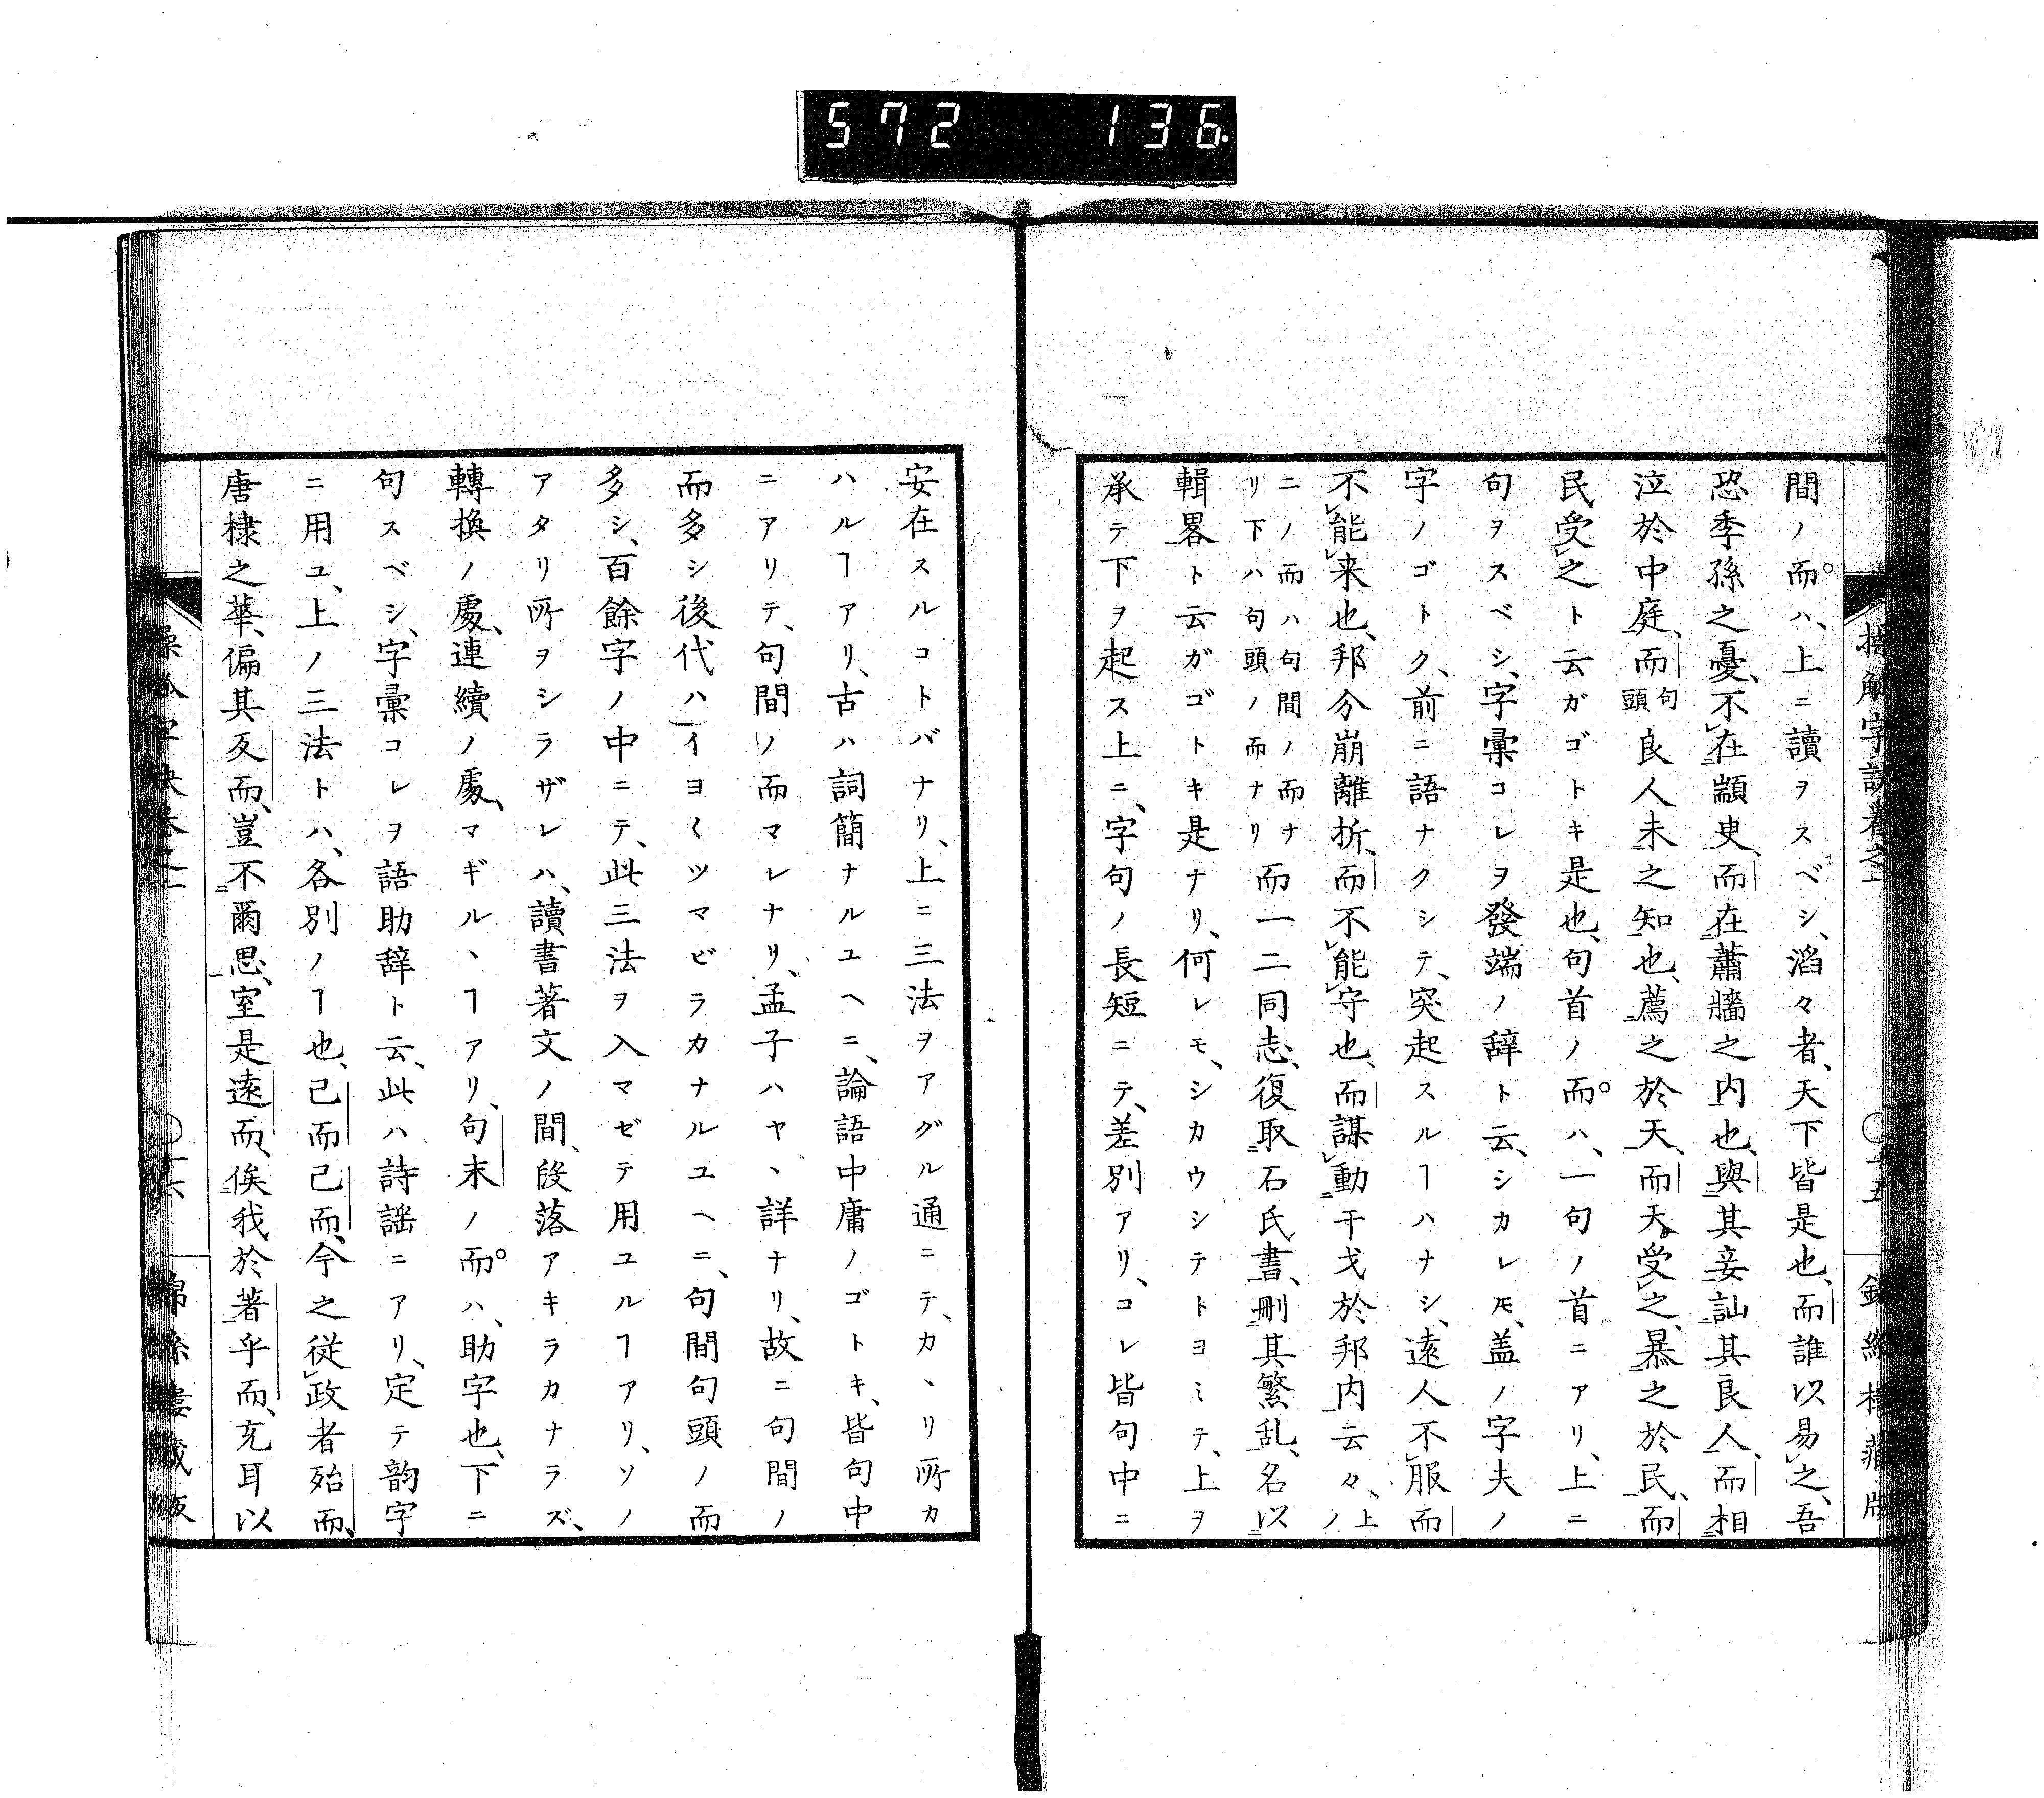 572 136.
間ノ而ハ、上ニ讀ヲスベシ、滔々者、天下皆是也、而誰以易之、吾
恐季孫之憂、不在顓臾、而在蕭牆之内也、與其妾訕其良人、而相
泣於中庭、而句頭良人未之知也、薦之於天、而天受之、暴之於民、而
民受之ト云ガゴトキ是也、句首ノ而ハ、一句ノ首ニアリ、上ニ
句ヲスベシ、字彙コレヲ發端ノ辞ト云、シカレ𪜈、盖ノ字夫ノ
字ノゴトク、前ニ語ナクシテ、突起スルヿハナシ、遠人不服而
不能来也、邦分崩離折、而不能守也、而謀動干戈於邦内云々、上ノ
二ノ而ハ句間ノ而ナリ下ハ句頭ノ而ナリ而一二同志、復取石氏書、刪其繁乱、名以
輯畧ト云ガゴトキ是ナリ、何レモ、シカウシテトヨミテ、上ヲ
承テ下ヲ起ス上ニ、字句ノ長短ニテ、差別アリ、コレ皆句中ニ
安在スルコトバナリ、上ニ三法ヲアグル通ニテ、カヽリ所カ
ハルヿアリ、古ハ詞簡ナルユヘニ、論語中庸ノゴトキ、皆句中
ニアリテ、句間ノ而マレナリ、孟子ハヤヽ詳ナリ、故ニ句間ノ
而多シ後代ハイヨ〱ツマビラカナルユヘニ、句間句頭ノ而
多シ、百餘字ノ中ニテ、此三法ヲ入マゼテ用ユルヿアリ、ソノ
アタリ所ヲシラザレハ、讀書著文ノ間、段落アキラカナラズ、
轉換ノ處、連續ノ處、マギルヽヿアリ、句末ノ而ハ、助字也、下ニ
句スベシ、字彙コレヲ語助辞ト云、此ハ詩謡ニアリ、定テ韵字
ニ用ユ、上ノ三法トハ、各別ノヿ也、已而已而、今之従政者殆而、
唐棣之華、偏其反而、豈不爾思、室是遠而、俟我於著乎而、充耳以